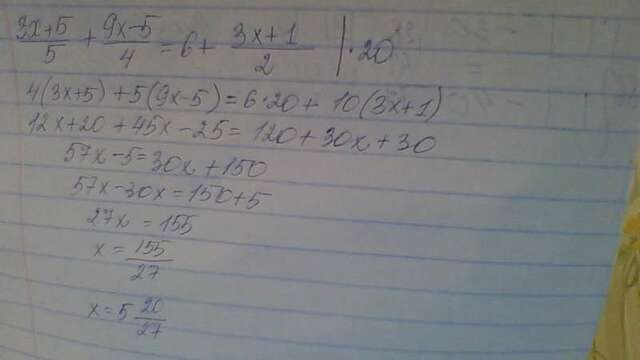 (3x+5)/5 + (9x-5)/4 = 6 + (3x+1)/2 | · 20
4(3x+5) + 5(9x-5) = 6·20 + 10(3x+1)
12x+20 + 45x - 25 = 120 + 30x + 30
57x - 5 = 30x + 150
57x - 30x = 150 + 5
27x = 155
x = 155/27
x = 5 20/27